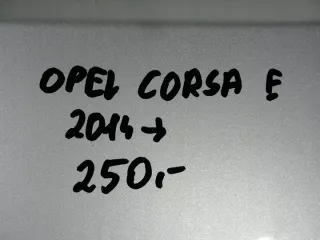 OPEL CORSA E
2014→
250,-